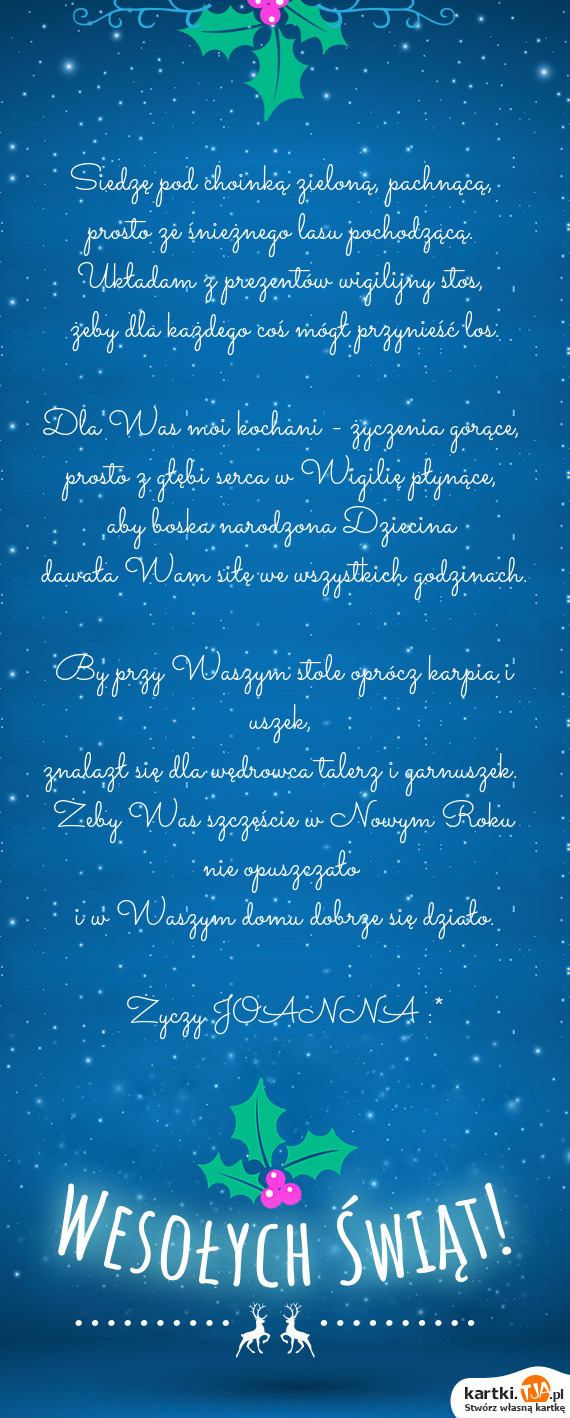 Siedzę pod choinką zieloną, pachnącą,
prosto ze śnieżnego lasu pochodzącą.
Układam z prezentów wigilijny stos,
żeby dla każdego coś mógł przynieść los.
Dla Was moi kochani - życzenia gorące,
prosto z głębi serca w Wigilię płynące,
aby boska narodzona Dziecina
dawała Wam siłę we wszystkich godzinach.
By przy Waszym stole oprócz karpia i
uszek,
znalazł się dla wędrowca talerz i garnuszek.
Żeby Was szczęście w Nowym Roku
nie opuszczało
i w Waszym domu dobrze się działo.
Życzy JOANNA :*
WESOŁYCH ŚWIĄT!
kartki.TJA.pl
Stwórz własną kartkę